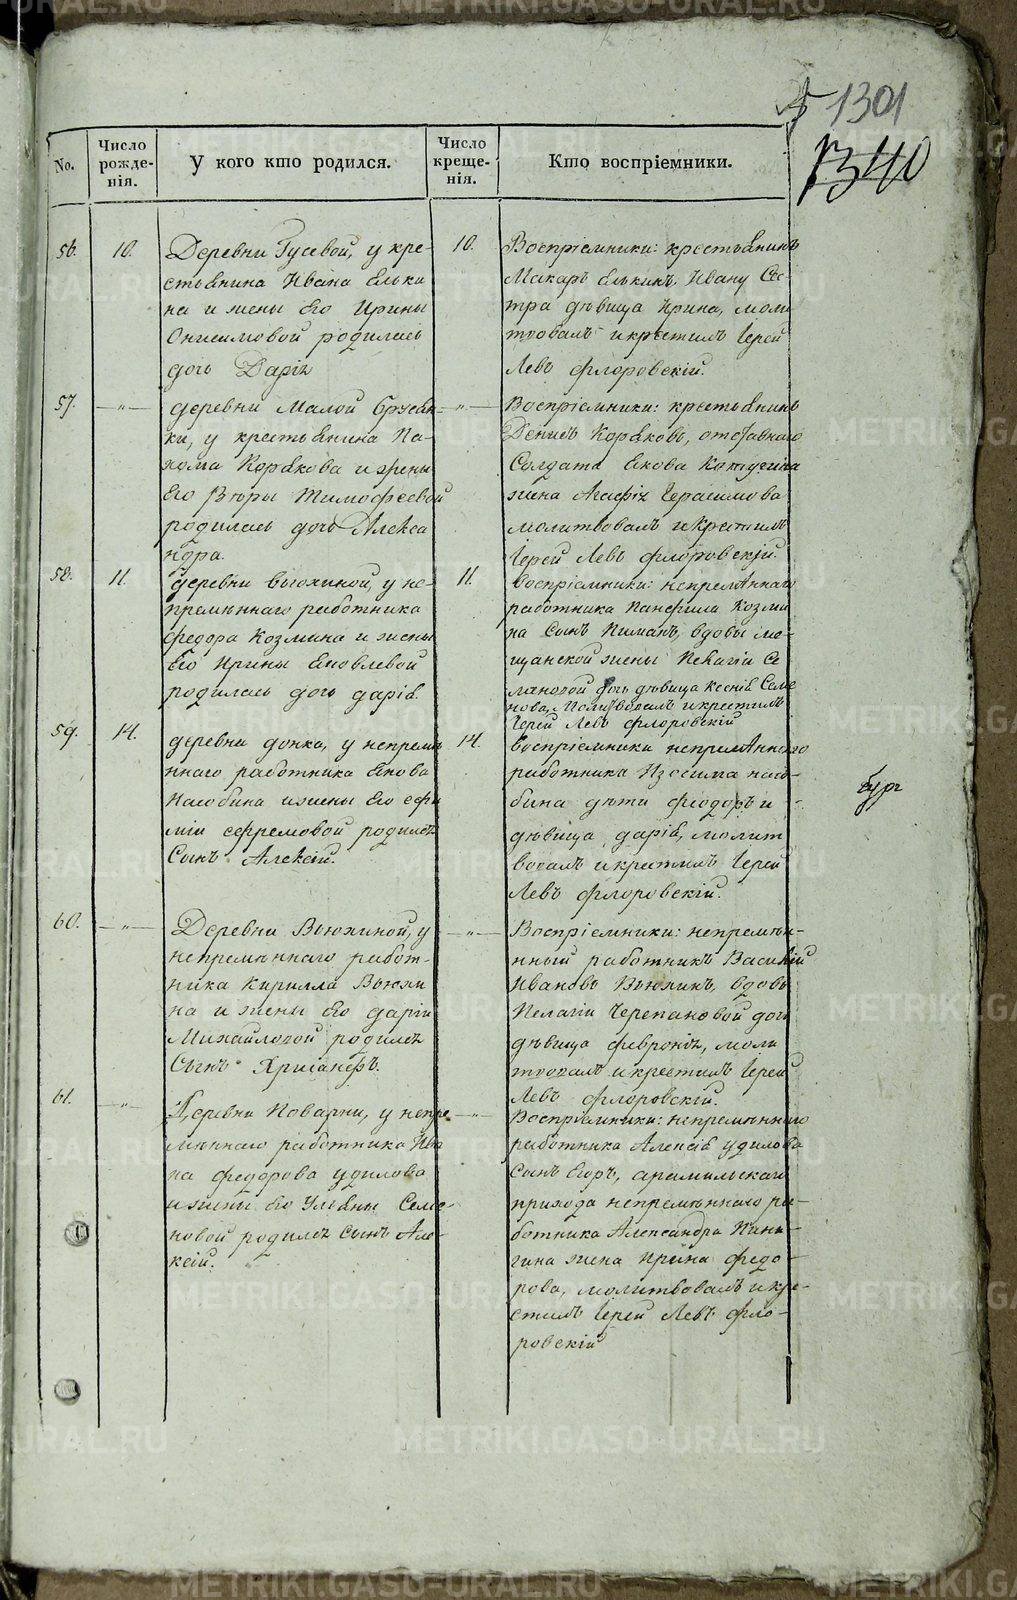 1301
1340
No.
Число рожденія.
У кого кто родился.
Число крещенія.
Кто воспріемники.
56.
10.
Деревни Гусевой, у кре-
стьянина Ивана Ельки
на и жены Его Ирины
Онисимовой родилась
дочь Дарія
10.
Воспріемники: крестьянинъ
Макаръ Елькинъ, Ивану Сес
тра дѣвица Ирина, моли
твовалъ и крестилъ Іерей
Левъ Флоровскій.
57.
—"—
деревни Малой Брусян-
ки, у крестьянина Па-
хома Корякова и жены
Его Вѣры Тимофеевой
родилась дочь Алекса
ндра.
—"—
Воспріемники: крестьянинъ
Денисъ Коряковъ, отставнаго
Солдата Якова
жена Агафія Герасимова
молитвовалъ и крестилъ
Іерей Левъ Флоровскій.
58.
11.
деревни Вьюхиной, у не-
премѣннаго работника
Федора Козмина и жены
Его Ирины Яковлевой
родилась дочь Дарія.
11.
Воспріемники: непремѣннаго
работника Панфила Козми
на Сынъ Пиманъ, вдовы мѣ-
щанской жены Пелагіи Се
мановой дочь дѣвица Ксенія Семе
нова, Молитвовалъ и крестилъ
Іерей Левъ Флоровскій
59.
14.
деревни Фомка, у непремѣ
ннаго работника Якова
Нагобина и жены Его Ефи
міи Ефремовой родился
Сынъ Алексій.
14.
Воспріемники непремѣннаго
работника Изосима наго-
бина дѣти Феодоръ и
дѣвица Дарія, молит
вовалъ и крестилъ Іерей
Левъ Флоровскій.
60.
—"—
Деревни Вьюхиной, у
непремѣннаго работ-
ника Кирилла Вьюхи
на и жены Его Даріи
Михайловой родился
Сынъ Хрисанфъ.
—"—
Воспріемники: непремѣн-
нный работникъ Василий
Ивановъ Вьюхинъ, вдовы
Пелагіи Черепановой дочь
дѣвица Февронія, моли
твовалъ и крестилъ Іерей
Левъ Флоровскій.
61.
—"—
Деревни Поварни, у непре
мѣннаго работника Ива
на Федорова удилова
и жены Его Ульяны Семе-
новой родился Сынъ Але-
ксій.
—"—
Воспріемники: непремѣннаго
работника Алексія удилова
Сынъ Егоръ, арамильскаго
прихода непремѣннаго ра-
ботника Александра Пани-
гина жена Ирина Федо-
рова, молитвовалъ и кре-
стилъ Іерей Левъ Фло-
ровскій
METRIKI.GASO-URAL.RU